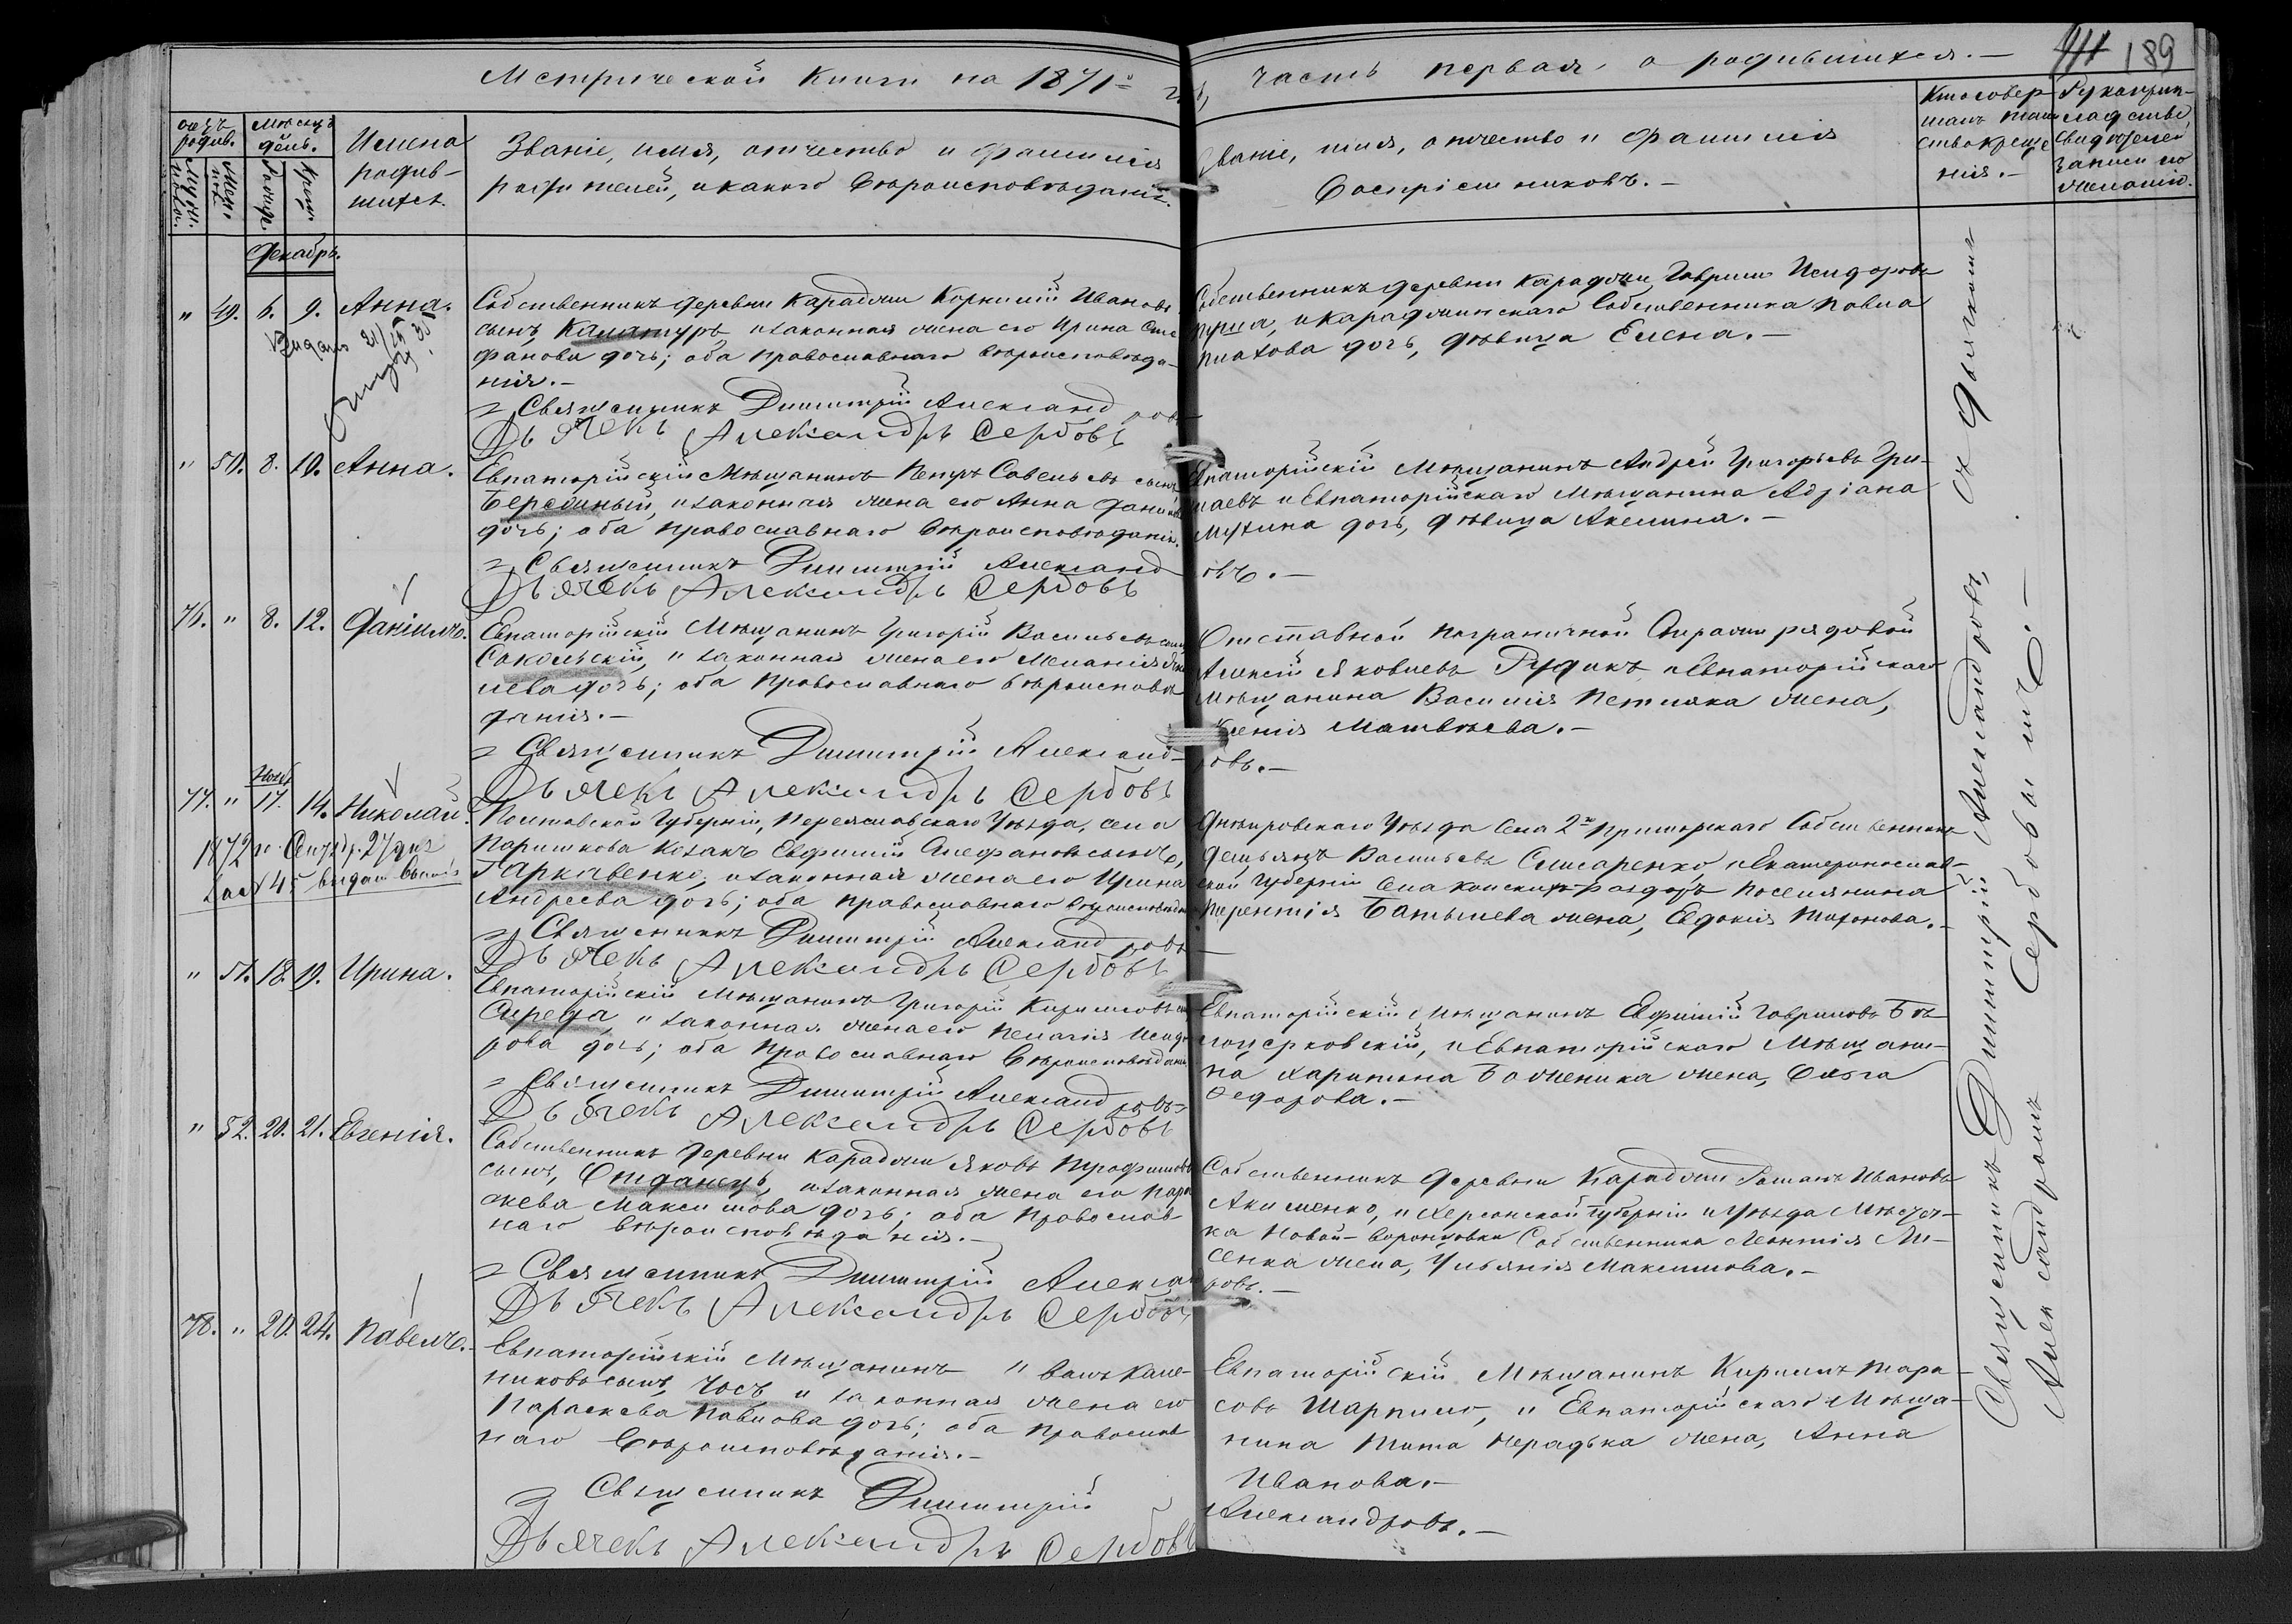 Метрической Книги на 1871й годъ, часть первая о родившихся.— 189
счетъ родив.
Муж. пола.
Жен. пола
Мѣсяцъ день.
Рожде.
Крещ.
Имена
родив-
шихся.
Званіе, имя, отчество и фамилія
родителей, и какого вѣроисповѣданія.
Званіе, имя, отчество и фамилія
воспріемниковъ.—
Кто совер-
шалъ таин
ство креще
нія.—
Рукоприк-
ладство
свидѣтелей
записи по
желанію.
Декабрь.
" 49. 6. 9. Анна.
Собственникъ деревни Караджи Корнилій Ивановъ
сынъ, Каматуръ, и законная жена его Ирина Сте
фанова дочь; оба православнаго вѣроисповѣда-
нія.—
Священникъ Димитрій Александровъ
Дьячекъ Александръ Сербовъ
Собственникъ деревни Караджи, Гавріилъ Исидоровъ
и Караджинскаго Собственника Павла
дочь, дѣвица Елена.—
" 50. 8. 10. Анна.
Евпаторійскій Мѣщанинъ Петръ Савельевъ сынъ
Бережный, и законная жена его Анна
дочь; оба православнаго вѣроисповѣданія.
Священникъ Димитрій Александровъ.—
Дьячекъ Александръ Сербовъ
Евпаторійскій Мѣщанинъ Андрей Григорьевъ
и Евпаторійскаго Мѣщанина Адріана
Мухина дочь, дѣвица Акелина.—
76. " 8. 12. Даніилъ.
Евпаторійскій Мѣщанинъ Григорій Васильевъ сынъ
Сокольскій, и законная жена его Меланія
лева дочь; оба православнаго вѣроисповѣ
данія.—
Священникъ Димитрій Александровъ.—
Дьячекъ Александръ Сербовъ
Отставной пограничной Стражи рядовой
Алексій Яковлевъ Рудикъ, и Евпаторійскаго
мѣщанина Василія Петляка жена,
Ксенія Матвѣева.—
77. " 17. 14. Николай.
1872 го Сентяб. 27 дня
за № 45 выдана выпись
Полтавской Губерніи, Переяславскаго Уѣзда, села
Паришкова Козакъ Евфимій Стефановъ сынъ,
Гаркавенко, и законная жена его Ирина
Андреева дочь; оба православнаго вѣроисповѣдан.
Священникъ Димитрій Александровъ
Дьячекъ Александръ Сербовъ
Днѣпровскаго Уѣзда Села 2го Приморскаго Собственникъ
Демьянъ Васильевъ Слисаренко, и Екатеринослав-
ской Губерніи Села Конскихъ-Раздоръ поселянина
Терентія Батышева жена, Евдокія Тихонова.—
" 51. 18. 19. Ирина.
Евпаторійскій Мѣщанинъ Григорій Кириловъ сынъ
Середа, и законная жена его Пелагія Исидо
рова дочь; оба православнаго вѣроисповѣданія
Священникъ Димитрій Александровъ
Дьячекъ Александръ Сербовъ
Евпаторійскій Мѣщанинъ Евфимій Гавриловъ Бѣ-
лоцерковскій, и Евпаторійскаго Мѣщани-
на Харитона Боженика жена, Ольга
Федорова.—
" 52. 20. 21. Евгенія.
Собственникъ деревни Караджи Яковъ Трофимовъ
сынъ, и законная жена его Пара
скева Максимова дочь; оба Православ
наго вѣроисповѣданія.—
Священникъ Димитрій Александровъ.—
Дьячекъ Александръ Сербовъ
Собственникъ деревни Караджи Романъ Ивановъ
Акименко, и Херсонской Губерніи и Уѣзда Мѣстеч-
ка Новой-Воронцовки Собственника Леонтія Ли-
сенка жена, Ульянія Максимова.—
78. " 20. 24. Павелъ.
Евпаторійскій Мѣщанинъ
сынъ, Чосъ, и законная жена его
Параскева Павлова дочь; оба православ
наго вѣроисповѣданія.—
Священникъ Димитрій Александровъ.—
Дьячекъ Александръ Сербовъ
Евпаторійскій Мѣщанинъ Кирилъ Тара-
совъ Шарпило, и Евпаторійскаго Мѣща-
нина Тита Нерадька жена, Анна
Иванова.—
Священникъ Димитрій Александровъ, съ Дьячкомъ
Александромъ Сербовымъ.—